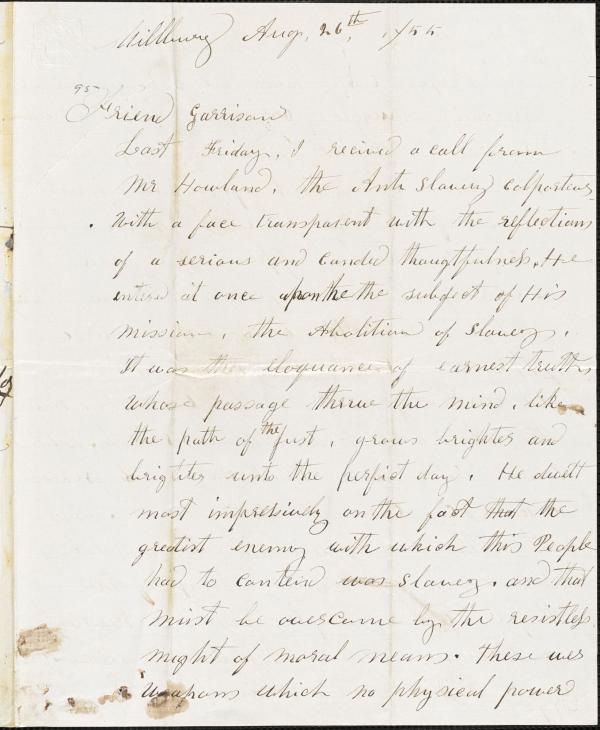 Millbury Aug, 26th, 1855
95
Friend Garrison
Last Friday, I recived a call from
Mr Howland, the Anti Slavery colporteur
With a face transparent with the reflections
of a serious and candid thougtfulness. He
entered at once upon the the subject of His
mission, the Abolition of Slavery.
It was the eloquance of earnest truth,
whose passage threw the mind, like
the path of the Just, grows brighter and
brighter unto the perfict day. He dwelt
most impressively on the fact that the
gredtist enemy with which this People
had to contend was slavery. and that
must be overcame by the resistless
might of moral means. These were
weapons which no physical power